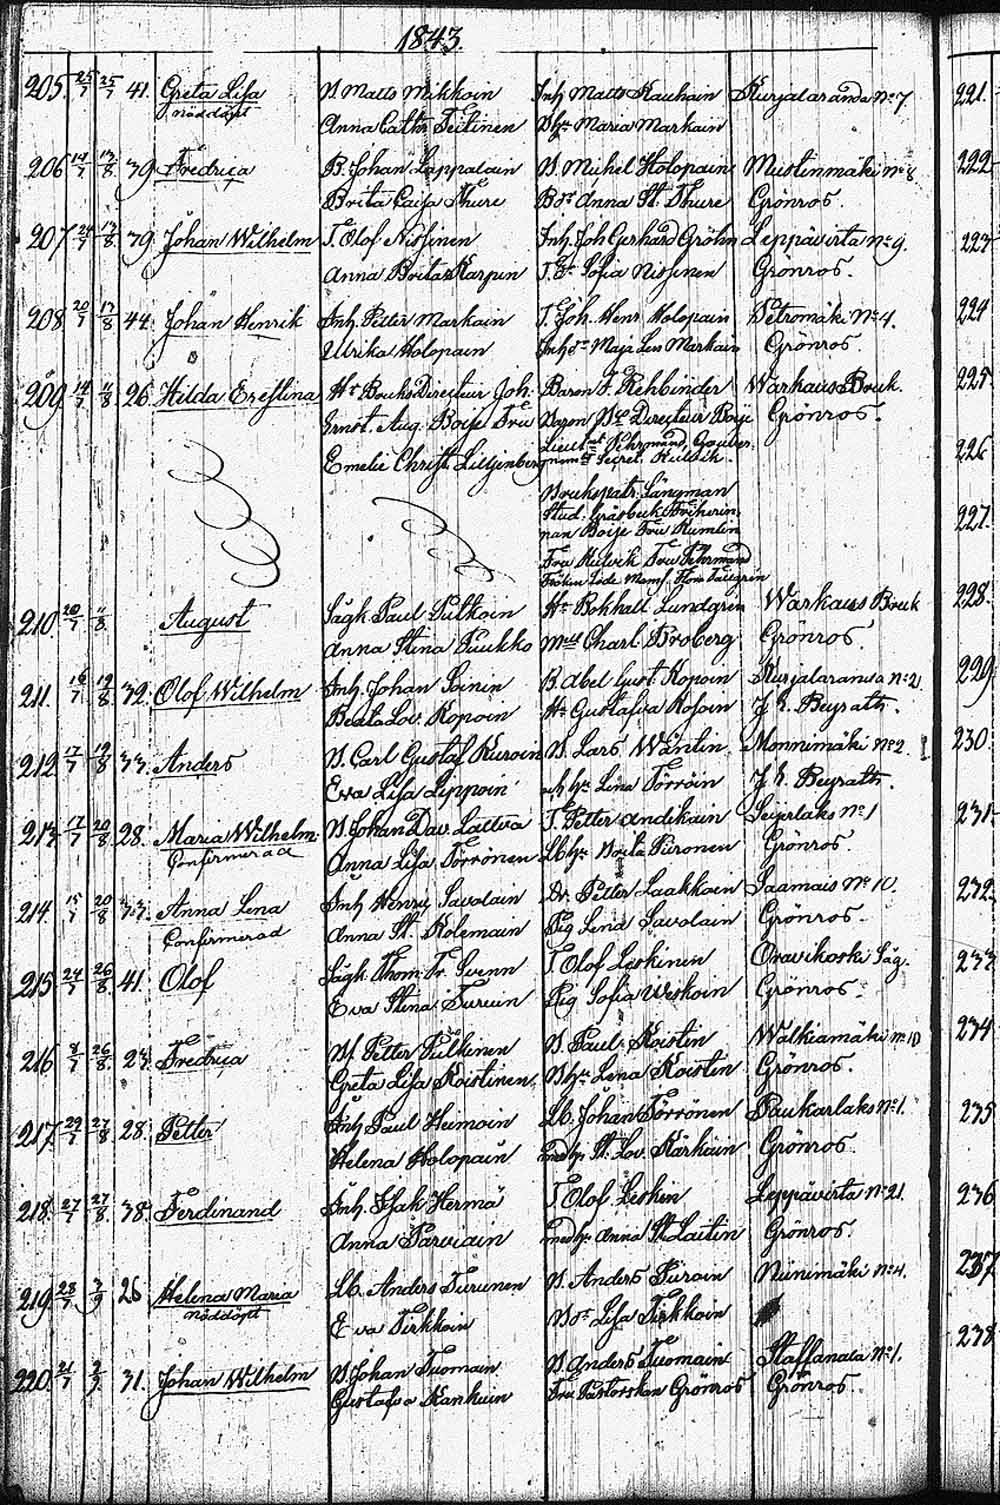 1843.
205. 25/7 25/7 41. Greta Lisa D. Matts Mikkoin Inh. Matts Kauhain Kurjalaranda No 7.
nöddöpt Anna Cath. Teitinen Maria Markain
206 14/7 13/8 39 Fredrica B. Johan Lappalain D. Michel Holopain Mustinmäki No 8
Brita Caisa Thure Anna St. Thure Grönros.
207 24/7 13/8 39. Johan Wilhelm T. Olof Nissinen Inh. Joh Gerhard Gröhn Leppävirta No 9.
Anna Brita Karpin Sofia Nissinen Grönros.
208 20/7 13/8 44. Johan Henrik Inh. Petter Markain T. Joh. Henr. Holopain Petromäki No 4.
Ulrika Holopain Maja Lis Markain Grönros.
209. 14/7 11/8 26 Hilda Ernestina Hr Bruks Directeur Joh. Baron Rehbinder Warkaus Bruk.
Ernst. Aug. Boije Fru Directeur Boije Grönros.
Emelie Christ. Lilljenberg Fehrmand, Gouver.
Secret. Hulvik.
Brukspatr. Längman
Stud. Gräsbeck Friherin,
nan Boije Fru Rumlin
Fru Hulvik Fru Fehrmand
Fröken Mams.
210 20/7 11/8 August Sågk. Paul Pulkoin Hr Bokhall Lundgren Warkaus Bruk
Anna Stina Puukko Mll Charl. Broberg Grönros.
211. 16/7 19/8 32. Olof Wilhelm Inh. Johan Soinin B. Abel Gust. Kopoin Kurjalaranda No 2.
Beata Lov. Kopoin Gustafva Kosoin J. h. Beyrath.
212 17/7 19/8 33. Anders D. Carl Gustaf Kuroin D. Lars Wäntin Monnimäki No 2.
Eva Lisa Leppoin Lina Törröin J. h. Beyrath.
213 17/7 20/8 28. Maria Wilhelm. D. Johan Dav. Lattva T. Petter Andikain Seijrlaks No 1
Confirmerad Anna Lisa Törrönen Brita Piironen Grönros.
214. 15/7 20/8 33. Anna Lena Inh Henric Savolain Dr. Petter Laakkoin Saamais No 10.
Confirmerad Anna St. Kolemain Pig Lena Savolain Grönros.
215 24/7 26/8 41. Olof Sågk. Thom. Fr. Svenn T. Olof Leskinen Oravikoski Såg.
Eva Stina Turuin Pig Sofia Weskoin Grönros.
216 8/7 26/8 23. Fredrica Petter Pulkinen D. Paul Koistin Walkiamäki No 10
Greta Lisa Koistinen Lena Koistin Grönros.
217. 29/7 27/8 28. Petter Inh Paul Heimoin Lb. Johan Törrönen Paukarlaks No 1.
Helena Holopain St. Lov. Kärkäin Grönros.
218. 27/7 27/8 38. Ferdinand Inh. Isak Hermä T. Olof Leskin Leppävirta No 21.
Anna Parviain Anna St. Laitin Grönros.
219 28/7 3/9 26 Helena Maria Lb. Anders Turunen D. Anders Piiroin Niinimäki No 4.
nöddöpt Eva Tirkkoin Lisa Tirkkoin
220. 21/7 3/9 31. Johan Wilhelm D. Johan Tuomain D. Anders Tuomain Staffanala No 1.
Gustafva Kankuin Fru Pastorskan Grönros Grönros.
221.
222
223
224
225
226
227.
228.
229
230
231
232
233
234
235
236
237
238